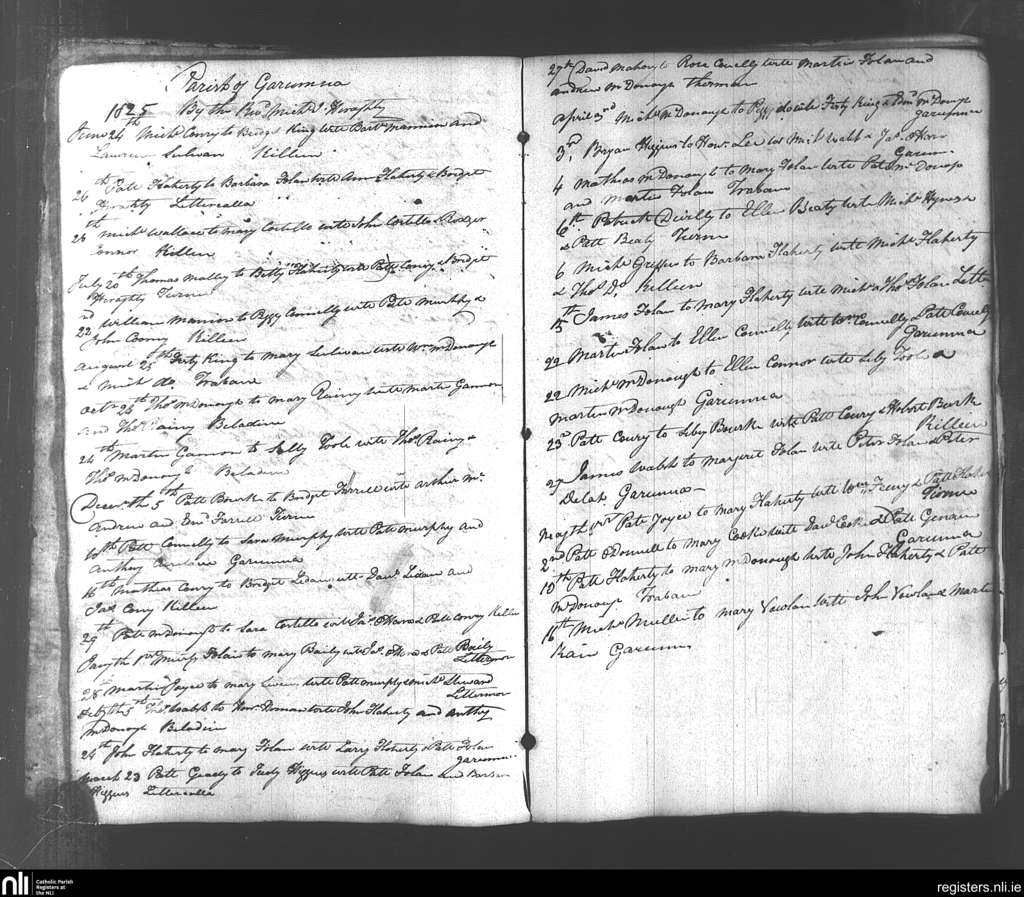 Parish of Garumna
1825 By the Revd Michl Heraghty
June 24th Michl Conry to Bridget King witt Bartw Mannion and
Lawrence Sulivan Killeen
26th Patt Flaherty to Barbara Folan witt Ann Flaherty & Bridget
Heraghty Lettercalla
28th Michl Wallace to Mary Costello witt John Costello & Roger
Connor Killeen
July 20th Thomas Mally to Betty Flaherty witt Patt Conry & Bridget
Heraghty Turne
22nd William Mannion to Peggy Connelly witt Patt Murphy &
John Cooney Killeen
August 25th Festy King to Mary Sulivan witt Wm McDonough
& Michl do. Trabane
Octr 24th Thos McDonough to Mary Rainy witt Martn Gannon
and Thos Rainy Beladin
24th Martin Gannon to Sally Toole witt Thos Rainy &
Thos McDonough Beladin
Decr th 5th Patt Bourk to Bridget Farrell witt Arthur Mc
Andrew and Edmd Farrell Turne
10th Patt Connelly to Sara Murphy witt Patt Murphy and
Anthony Garumna
16th Mathias Conry to Bridget witt Davd and
Jas Conry Killeen
29th Patt McDonough to Sara Costello witt Jas OHara & Patt Conry Killeen
Jany th 1st Folan to Mary Baily witt Jas OHara & Patt Baily
Lettermore
28th Martin Joyce to Mary witt Patt Murphy & Michl
Lettermor
Feby th 5th Thos Walsh to Honr witt John Flaherty and Anthy
McDonough Beladin
24th John Flaherty to Mary Folan witt Larry Flaherty & Patt Folan
Garumna
March 23 Patt Grady to Judy Higgins witt Patt Folan and Barbara
Higgins Lettercalla
27th David Mahony to Rose Connelly witt Martin Folan and
Andrew McDonough
April 3rd Michl McDonough to Peggy witt Festy King & Edmd McDonough
Garumna
3rd, Bryan Higgins to Honr Lee wit Michl Walsh & Jas OHara
Garum.
4 Mathias McDonough to Mary Folan witt Patt McDonough
and Martin Folan Trabane
6th Patrick to Ellen Beaty witt Michl Hynes
& Patt Beaty Turne
6 Michl Griffin to Barbara Flaherty witt Michl Flaherty
& Thos Do. Killeen
15th James Folan to Mary Flaherty witt Michl & Thos Folan Letter
22 Martin Folan to Ellen Connelly witt Wm Connelly & Patt Connelly
Garumna
22 Michl McDonough to Ellen Connor witt Siby Toole &
Martin McDonough Garumna
23rd Patt Conry to Siby Bourke witt Patt Conry & Hobort Burk
Killeen
27 James Walsh to Margeret Folan witt Peter Folan & Peter
Delap Garumna
May th 1st Patt Joyce to Mary Flaherty witt Wm Feeny & Patt Flaher
Turne
2nd Patt ODonnell to Mary Cooke witt Davd Cook & Patt
Garumna
10th Patt Flaherty to Mary McDonough witt John Flaherty & Patt
McDonough Trabane
16th Michl Mullin to Mary Nowlan witt John Nowlan & Martin
Kain Garumna
nli
Catholic Parish
Registers at
the NLI
registers.nli.ie